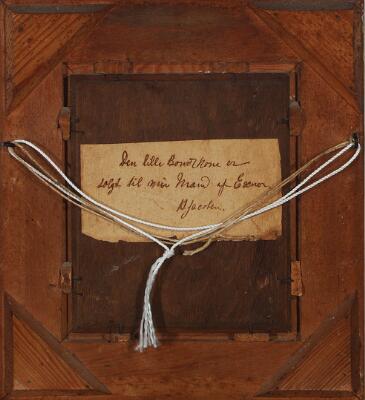 Den lille Bondekone er
solgt til min Mand af Eieren